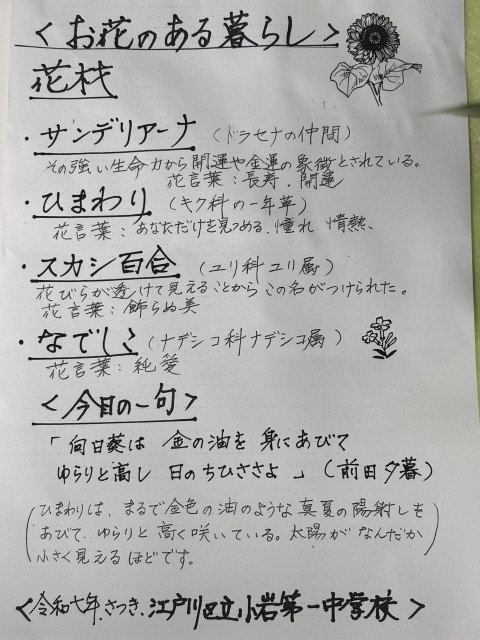 <お花のある暮らし>
花材
・サンデリアーナ (ドラセナの仲間)
その強い生命力から開運や金運の象徴とされている。
花言葉：長寿．開運
・ひまわり (キク科の一年草)
花言葉：あなただけを見つめる．憧れ．情熱、
・スカシ百合 (ユリ科ユリ属)
花びらが透けて見えることからこの名がつけられた。
花言葉：飾らぬ美
・なでしこ (ナデシコ科ナデシコ属)
花言葉：純愛
<今日の一句>
「向日葵は 金の油を 身にあびて
ゆらりと高し 日のちひささよ」(前田夕暮)
(ひまわりは、まるで金色の油のような真夏の陽射しを
あびて、ゆらりと 高く咲いている。太陽が なんだか
小さく見えるほどです。)
<令和七年．さつき．江戸川区立小岩第一中学校>